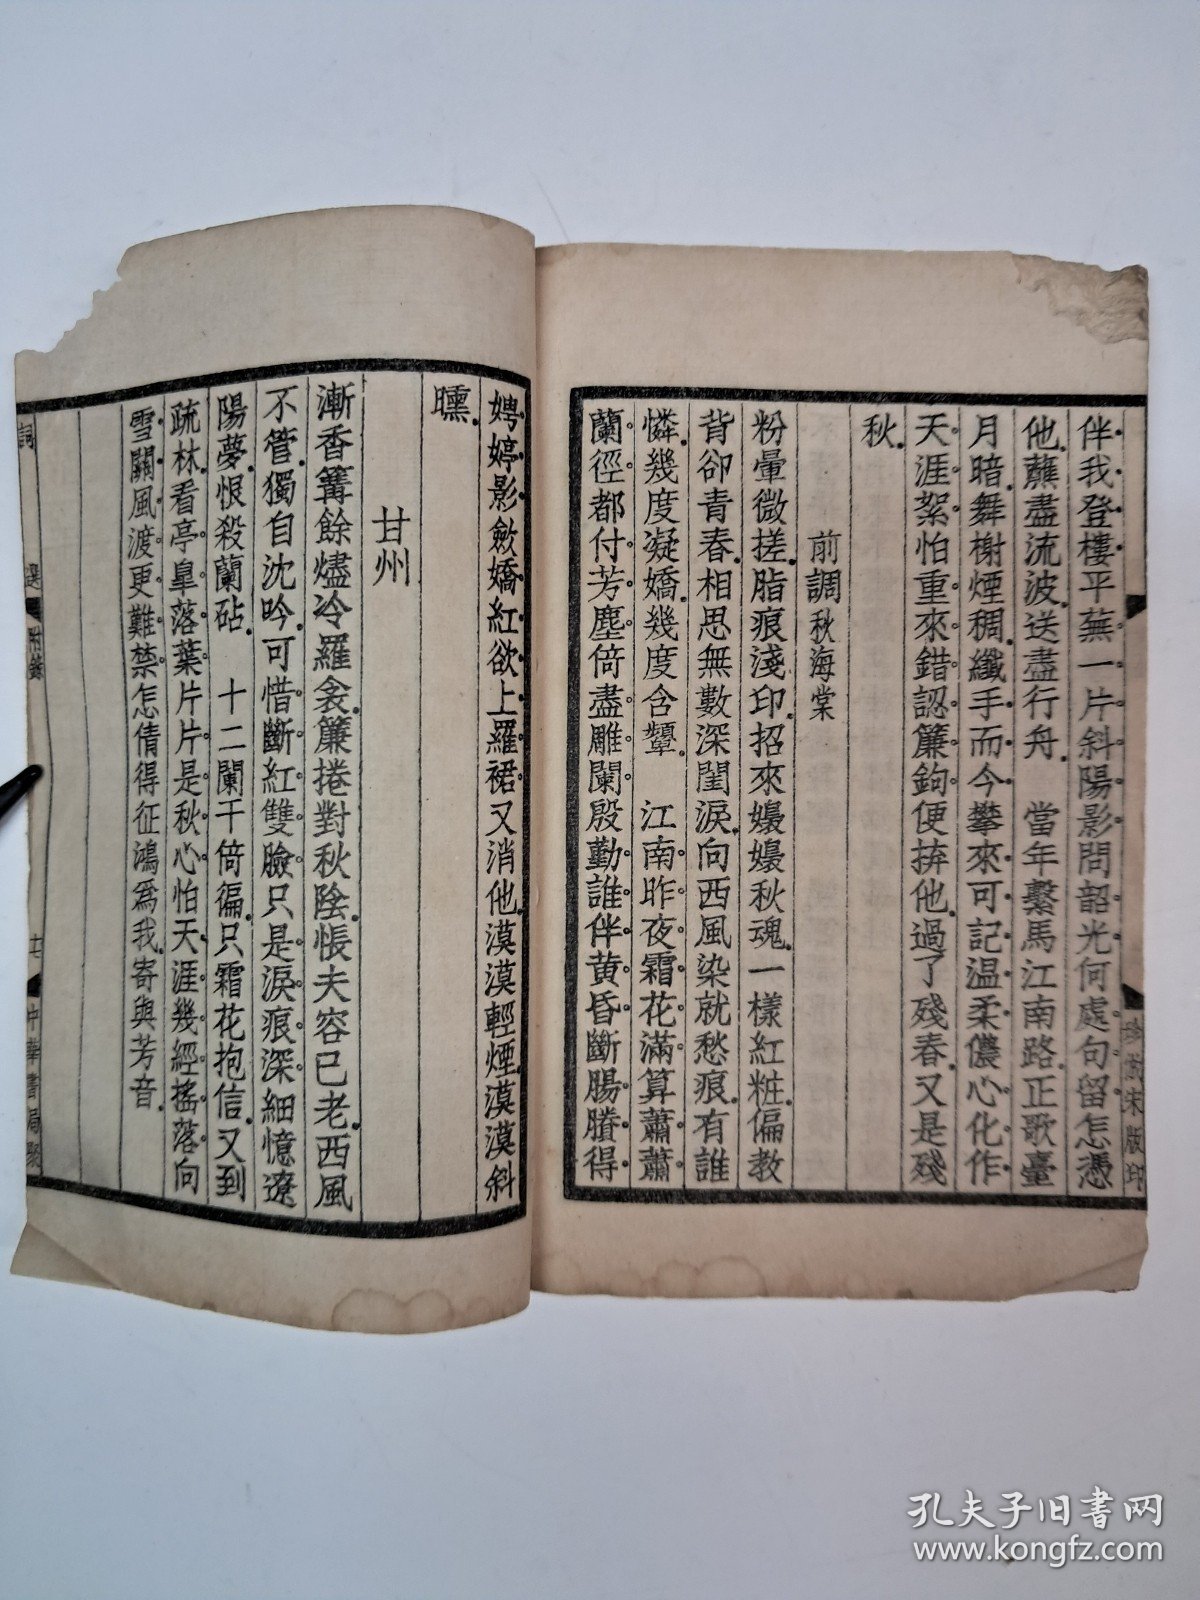 伴我登樓平蕪一片斜陽影問韶光何處句留怎憑
他蘸盡流波送盡行舟　當年繫馬江南路正歌臺
月暗舞榭煙稠纖手而今攀來可記温柔儂心化作
天涯絮怕重來錯認簾鉤便拚他過了殘春又是殘
秋
前調秋海棠
粉暈微搓脂痕淺印招來嫚嫚秋魂一樣紅粧偏教
背卻青春相思無數深閨淚向西風染就愁痕有誰
憐幾度凝嬌幾度含顰　江南昨夜霜花滿算蕭蕭
蘭徑都付芳塵倚盡雕闌殷勤誰伴黄昏斷腸賸得
珍倣宋版印
娉婷影斂嬌紅欲上羅裙又消他漠漠輕煙漠漠斜
曛
甘州
漸香篝餘燼冷羅衾簾捲對秋陰悵夫容已老西風
不管獨自沈吟可惜斷紅雙臉只是淚痕深細憶遼
陽夢恨殺蘭砧　十二闌干倚徧只霜花抱信又到
疏林看亭皐落葉片片是秋心怕天涯幾經搖落向
雪關風渡更難禁怎倩得征鴻爲我寄與芳音
詞選　附錄　十七　中華書局聚
孔夫子旧书网
www.kongfz.com